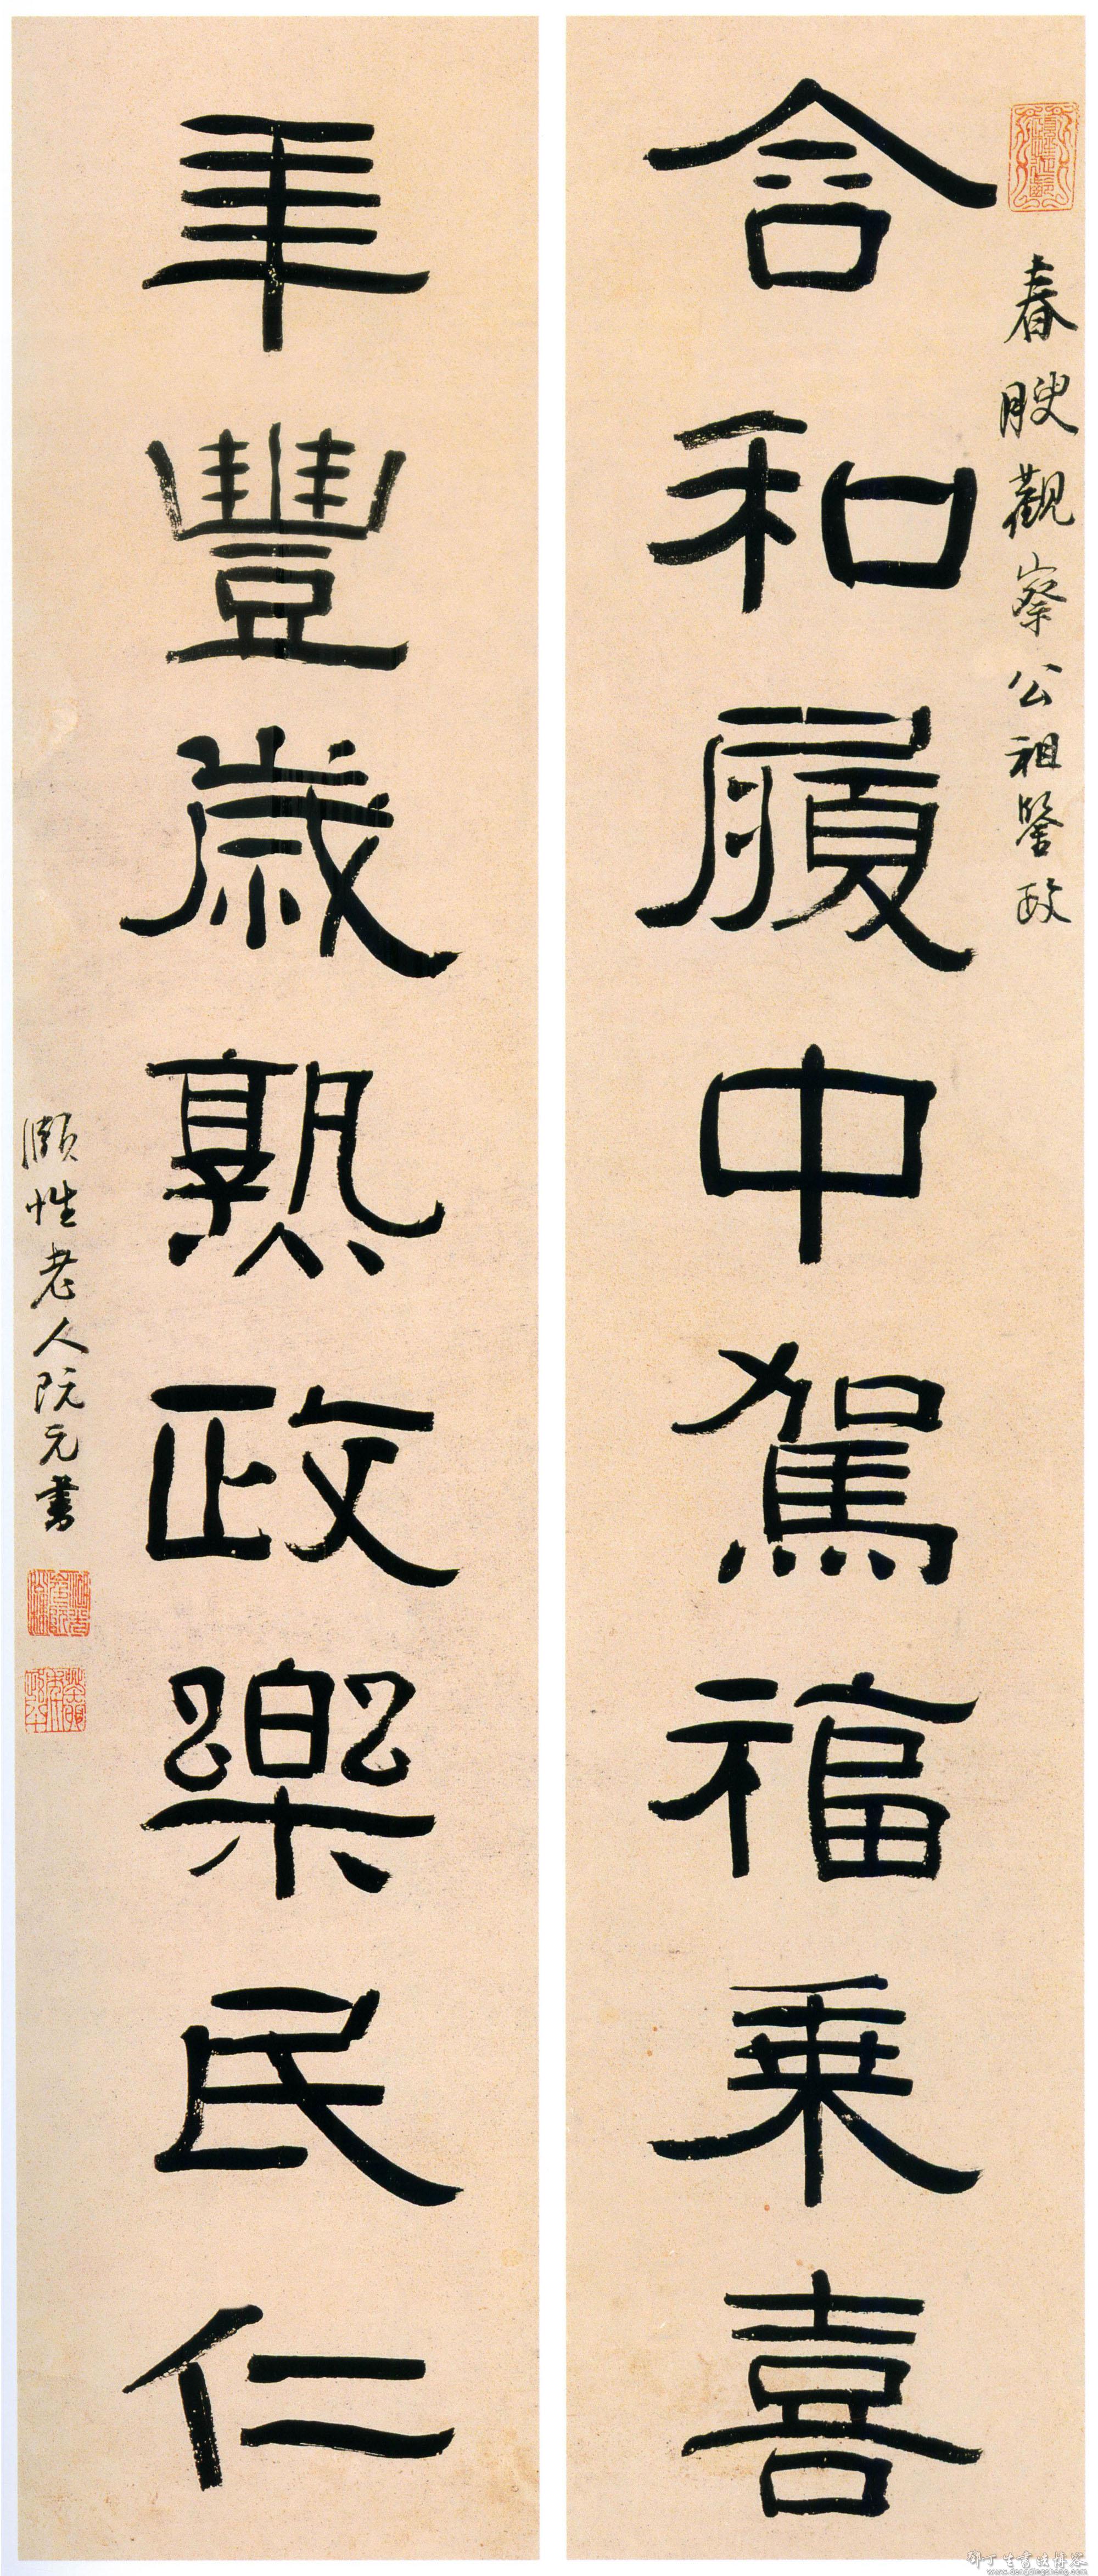 春睃觀察公祖鑒政
含和履中駕福乗喜
年豐歲熟政樂民仁
頤性老人阮元書